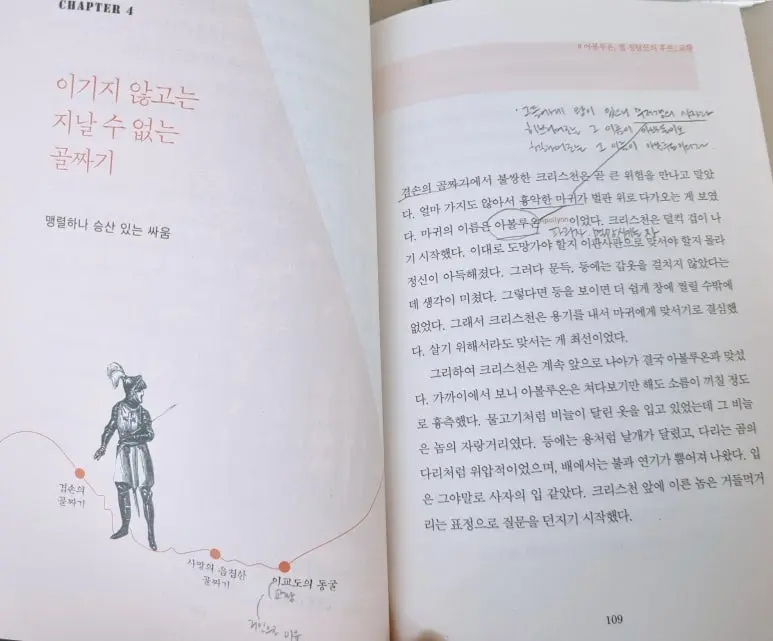 CHAPTER 4
이기지 않고는
지날 수 없는
골짜기
맹렬하나 승산 있는 싸움
겸손의
골짜기
사망의 음침한
골짜기
이교도의 동굴
교황
아볼루온,
교훈
그들에게 왕이 있으니 무저갱의 사자라
히브리어로는 그 이름이 아바돈이요
헬라어로는 그 이름이
겸손의 골짜기에서 불쌍한 크리스천은 곧 큰 위험을 만나고 말았
다. 얼마 가지도 않아서 흉악한 마귀가 벌판 위로 다가오는 게 보였
다. 마귀의 이름은 아볼루온Apollyon이었다. 크리스천은 덜컥 겁이 나
파괴자, 멸망시키는 자
기 시작했다. 이대로 도망가야 할지 이판사판으로 맞서야 할지 몰라
정신이 아득해졌다. 그러다 문득, 등에는 갑옷을 걸치지 않았다는
데 생각이 미쳤다. 그렇다면 등을 보이면 더 쉽게 창에 찔릴 수밖에
없었다. 그래서 크리스천은 용기를 내서 마귀에게 맞서기로 결심했
다. 살기 위해서라도 맞서는 게 최선이었다.
그리하여 크리스천은 계속 앞으로 나아가 결국 아볼루온과 맞섰
다. 가까이에서 보니 아볼루온은 쳐다보기만 해도 소름이 끼칠 정도
로 흉측했다. 물고기처럼 비늘이 달린 옷을 입고 있었는데 그 비늘
은 놈의 자랑거리였다. 등에는 용처럼 날개가 달렸고, 다리는 곰의
다리처럼 위압적이었으며, 배에서는 불과 연기가 뿜어져 나왔다. 입
은 그야말로 사자의 입 같았다. 크리스천 앞에 이른 놈은 거들먹거
리는 표정으로 질문을 던지기 시작했다.
109